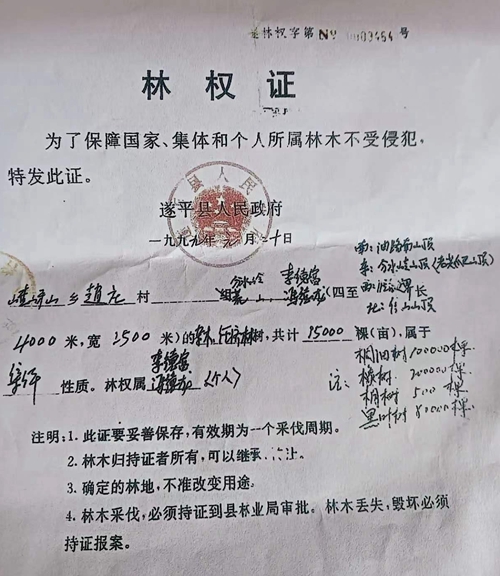 林权字第 № 0003464 号
林权证
为了保障国家、集体和个人所属林木不受侵犯，
特发此证。
遂平县人民政府
一九九九年 月二十日
南：油路南山顶
东：分水岭山顶
西：
北：
嵖岈山乡赵庄村
分水岭
组 山
李德富
（四至 长
4000米，宽2500米）的 树，共计15000棵（亩），属于
性质。林权属
李德富
（个人）
注：
100000棵
橡树 20000棵
桐树 500棵
80000棵
注明：1. 此证要妥善保存，有效期为一个采伐周期。
2. 林木归持证者所有，可以继承、转让。
3. 确定的林地，不准改变用途。
4. 林木采伐，必须持证到县林业局审批。林木丢失，毁坏必须
持证报案。